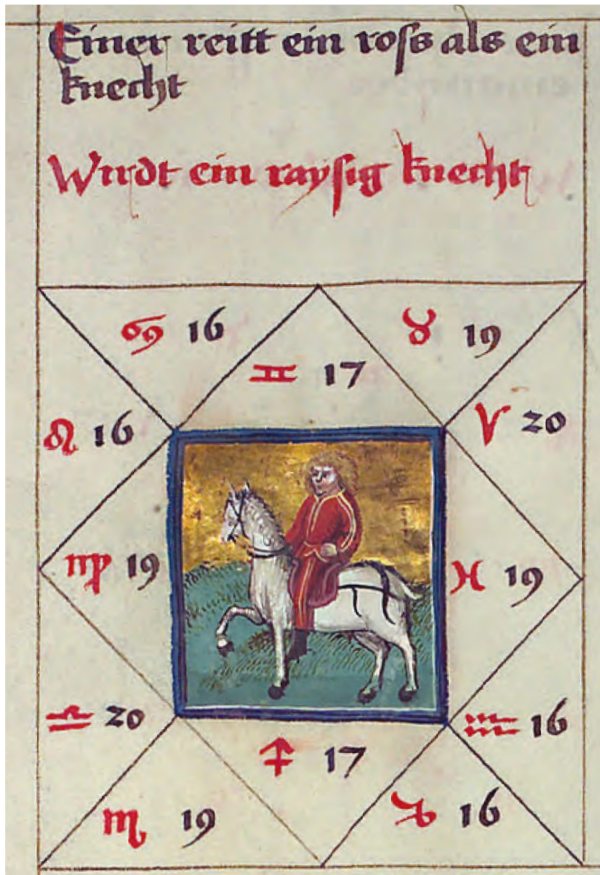 Einer reitt ein ross als ein
knecht
Wirdt ein raysig knecht
♋ 16
♉ 19
♊ 17
♌ 16
♈ 20
♍ 19
♓ 19
♎ 20
♒ 16
♐ 17
♏ 19
♑ 16